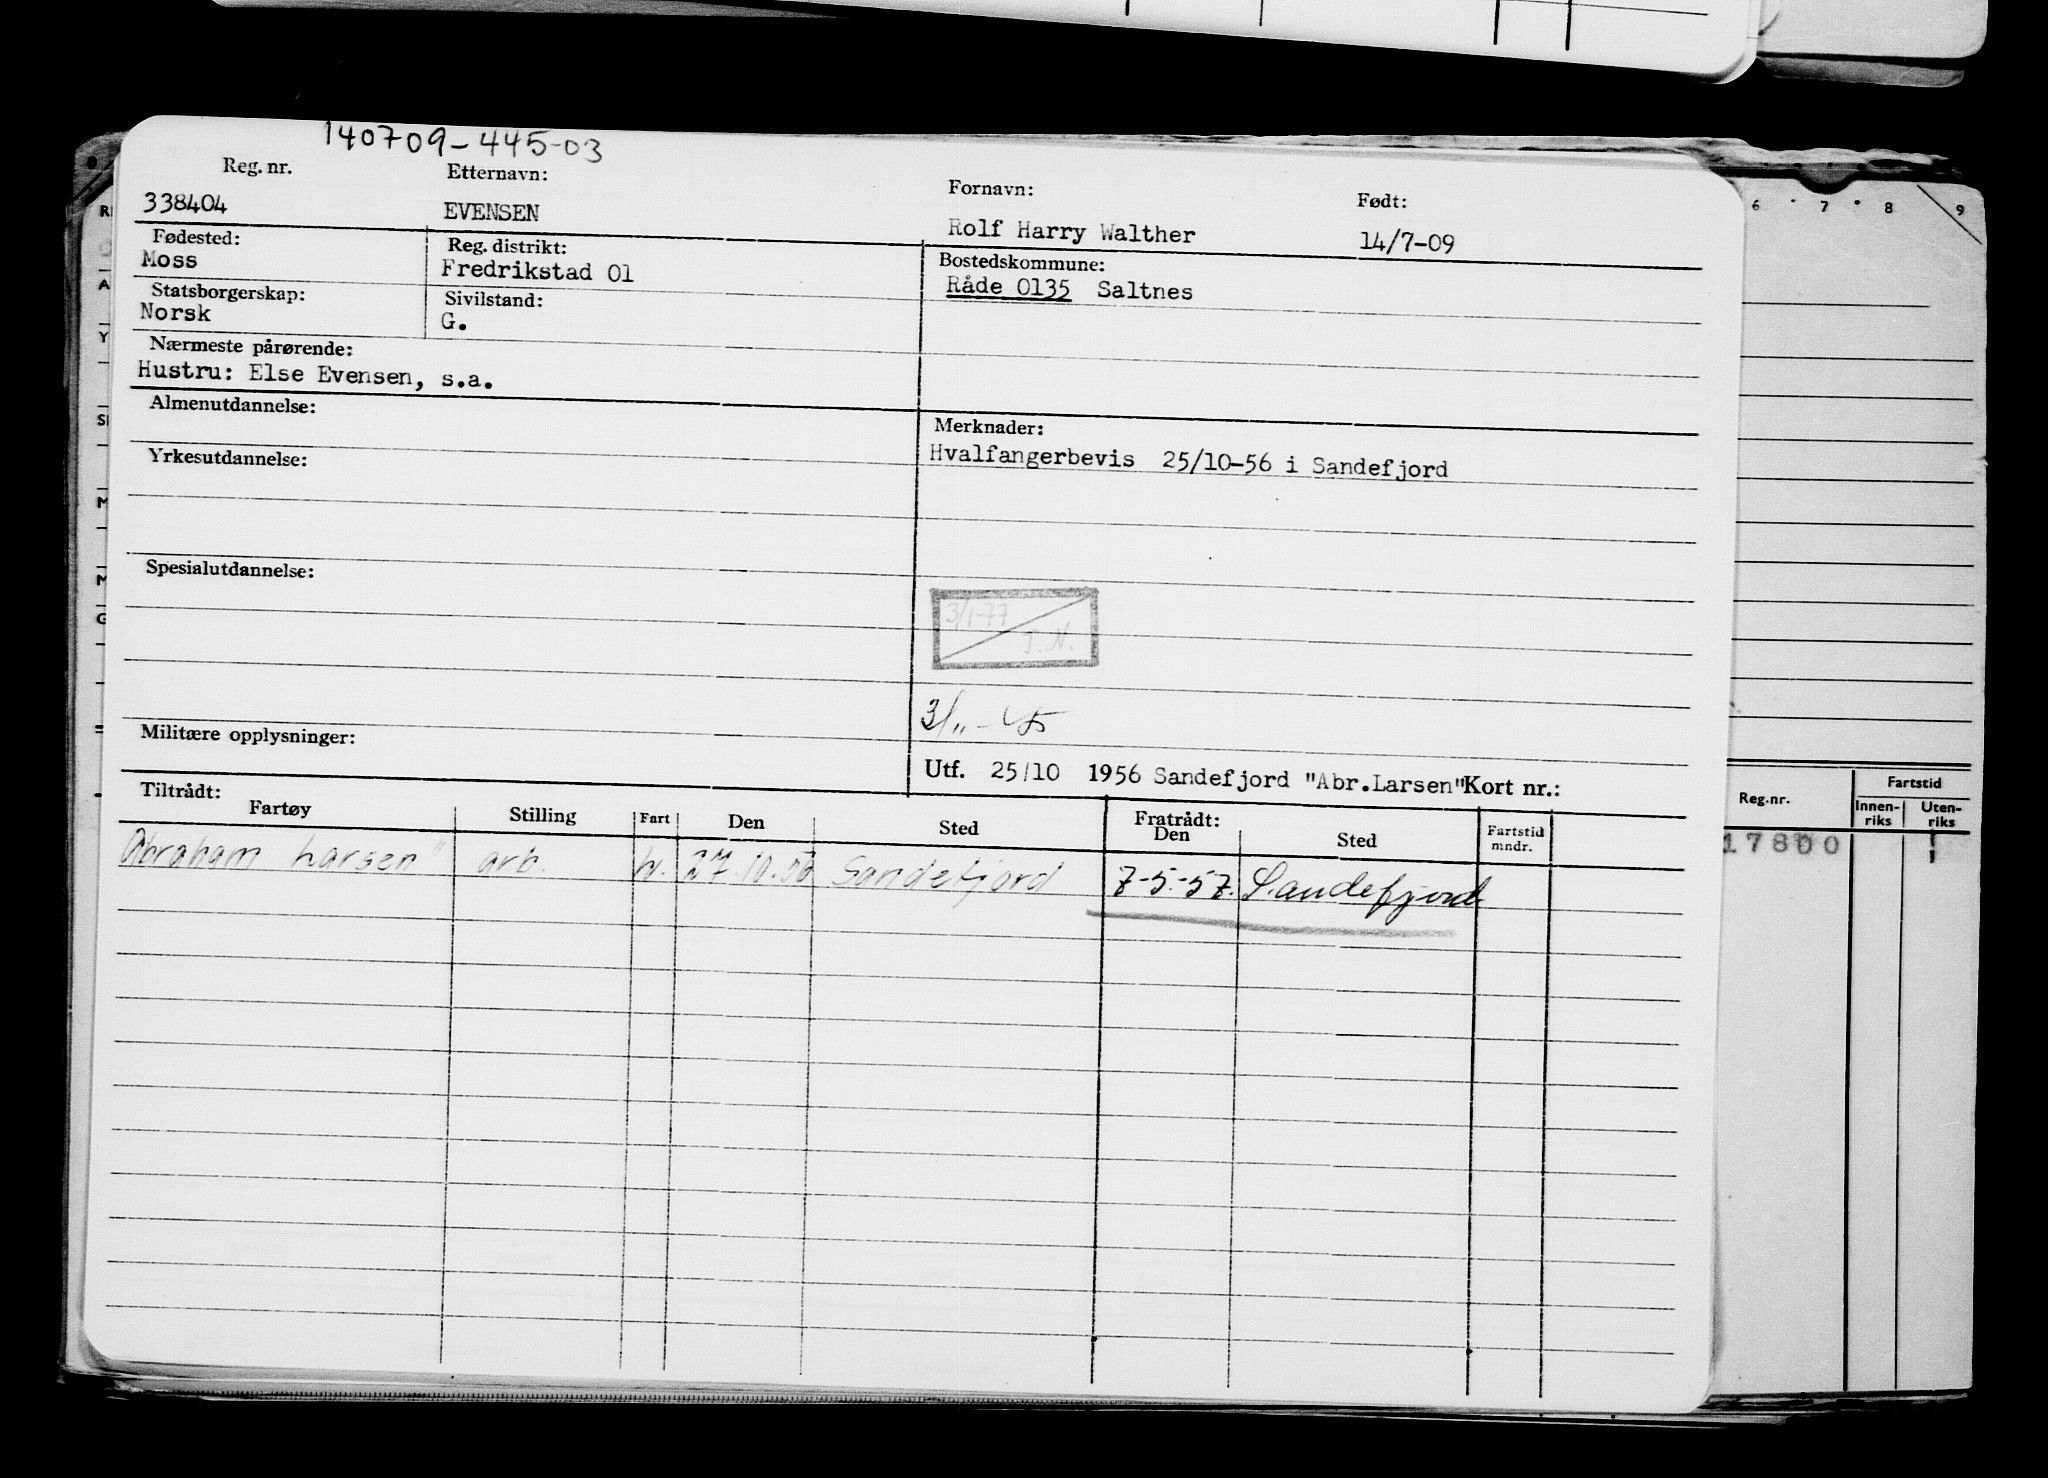 140709-445-03
Reg. nr. Etternavn: Fornavn: Født:
338404 EVENSEN Rolf Harry Walther 14/7-09
Fødested: Reg. distrikt: Bostedskommune:
Moss Fredrikstad 01 Råde 0135 Saltnes
Statsborgerskap: Sivilstand:
Norsk G.
Nærmeste pårørende:
Hustru: Else Evensen, s.a.
Almenutdannelse: Merknader:
Hvalfangerbevis 25/10-56 i Sandefjord
Yrkesutdannelse:
Spesialutdannelse:
3/1-77
J.N.
Militære opplysninger:
Utf. 25/10 1956 Sandefjord "Abr.Larsen" Kort nr.:
Tiltrådt: Fratrådt:
Fartøy Stilling Fart Den Sted Den Sted Fartstid mndr.
Abraham Larsen" arb. h. 27.10.56 Sandefjord 7-5-57. Sandefjord
6 7 8 9
Reg.nr. Fartstid
Innen-riks Uten-riks
17800